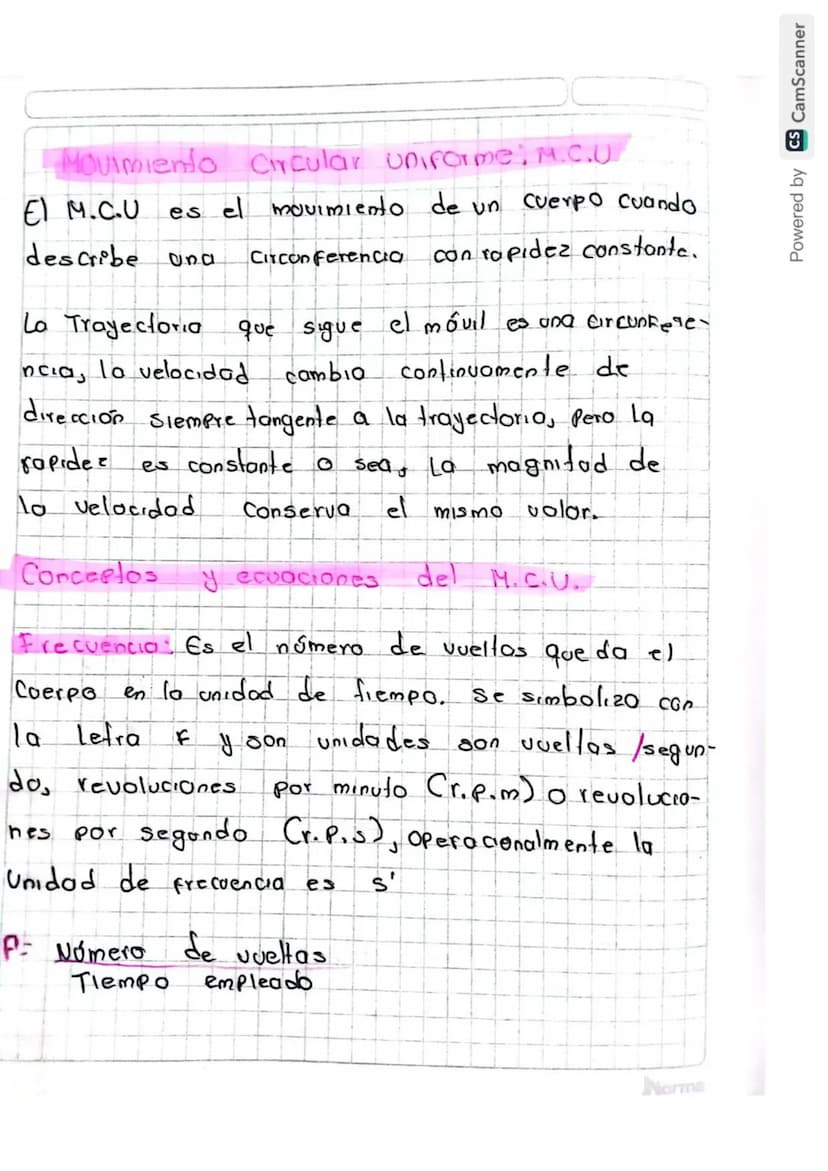 Movimiento Circular Uniforme: M.C.U
El M.C.U es el movimiento de un cuerpo cuando
describe una circonferencia con rapidez constante.
La Trayectoria que sigue el móvil es una circunfere-
ncia, la velocidad cambia continuamente de
dirección siempre tangente a la trayectoria, pero la
rapidez es constante o sea, La magnitud de
la velocidad conserva el mismo valor.
Conceptos y ecuaciones del M.C.U.
Frecuencia: Es el número de vueltas que da el
Cuerpo en la unidad de tiempo. Se simboliza con
la letra F y son unidades son vueltas /segun-
do, revoluciones por minuto (r.p.m) o revolucio-
nes por segundo (r.p.s), operacionalmente la
Unidad de frecuencia es s'
F= Número de vueltas
Tiempo empleado
Norma
Powered by CS CamScanner